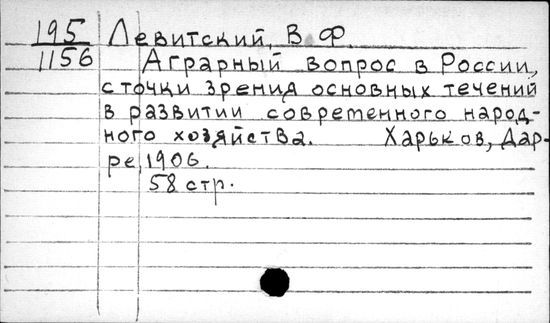 195 Левитский, В. Ф.
1156 Аграрный вопрос в России,
с точки зрения основных течений
в развитии современного народ-
ного хозяйства. Харьков, Дар-
ре, 1906.
58 стр.